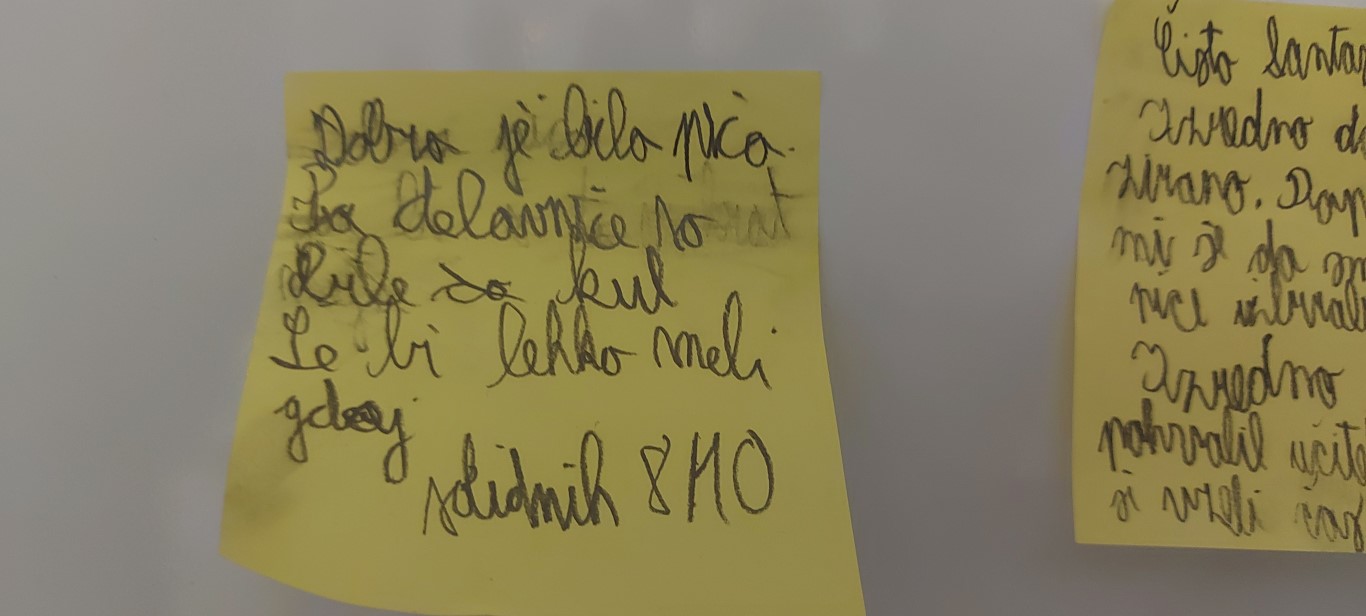 Dobra je bila pica.
Ta delavnice so
bile so kul
Še bi lahko meli
gdaj
solidnih 8/10
Čisto fantas
Izredno d
zirano. Dop
mi je da
nice izbrali
Izredno
pohvalil učite
si vzeli čas